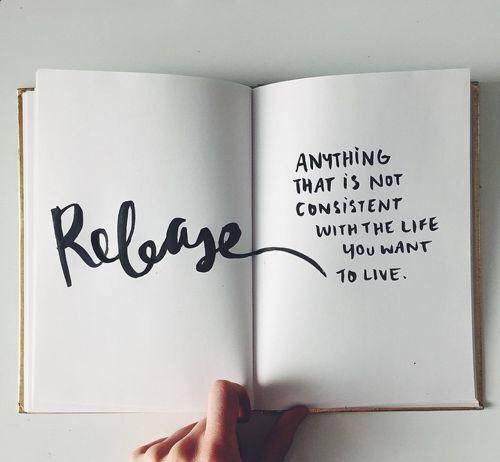 Release
ANYTHING
THAT iS NOT
CONSiSTENT
WITH THE LIFE
YOU WANT
TO LIVE.